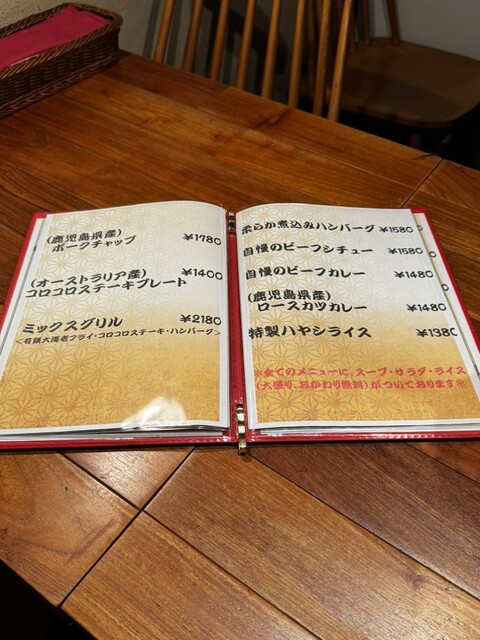 (鹿児島県産)
ポークチャップ ¥1780
(オーストラリア産) ¥1400
コロコロステーキプレート
ミックスグリル ¥2180
<有頭大海老フライ・コロコロステーキ・ハンバーグ>
柔らか煮込みハンバーグ ¥1580
自慢のビーフシチュー ¥1580
自慢のビーフカレー ¥1480
(鹿児島県産)
ロースカツカレー ¥1480
特製ハヤシライス ¥1380
※全てのメニューに、スープ・サラダ・ライス
(大盛り、おかわり無料)がついております※